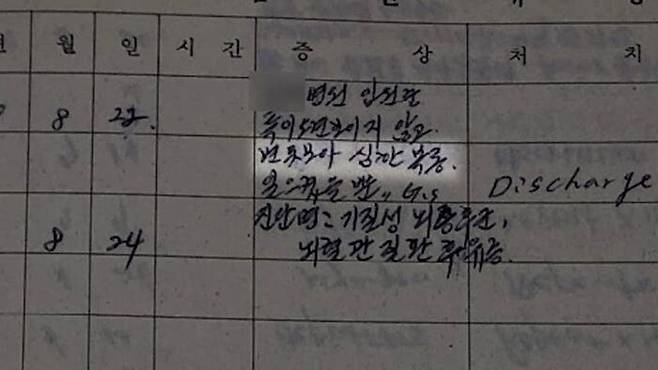 월 일 시 간 증 상 처 지
8 22. 병원 입원란
않고
변 못 보아 심한 복통.
G.S Discharge
진단명 : 기질성 뇌증후군,
8 24 뇌혈관 질환 후유증.